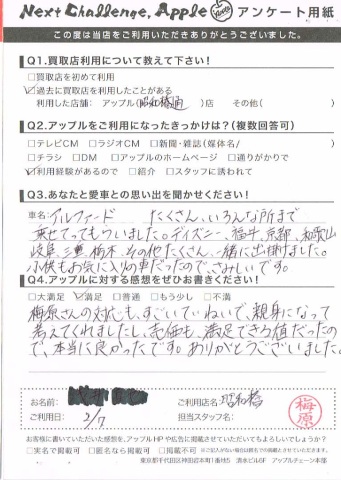 Next Challenge, Apple アンケート用紙
この度は当店をご利用いただきありがとうございました。
Q1.買取店利用について教えて下さい!
□買取店を初めて利用
☑過去に買取店を利用したことがある
利用した店舗: アップル(昭和橋通)店 その他( )
Q2.アップルをご利用になったきっかけは?(複数回答可)
□テレビCM □ラジオCM □新聞・雑誌(媒体名/ )
□チラシ □DM □アップルのホームページ □通りがかりで
☑利用経験があるので □紹介 □スタッフに誘われて
Q3.あなたと愛車との思い出を聞かせください!
車名: アルファード たくさん、いろんな所まで
乗せてってもらいました。ディズニー、福井、京都、和歌山
岐阜、三重、栃木、その他たくさん、一緒に出掛けました。
子供もお気に入りの車だったので、さみしいです。
Q4.アップルに対する感想をぜひお書きください!
□大満足 ☑満足 □普通 □もう少し □不満
梅原さんの対応も、すごいていねいで、親身になって
考えてくれましたし、売価も、満足できる値だったの
で、本当に良かったです。ありがとうございました。
お名前:
ご利用店名: 昭和橋
ご利用日: 2/7
担当スタッフ名: 梅原
お客様に書いていただいた感想を、アップルHPや広告に掲載させていただいてもよろしいでしょうか?
□実名で掲載可 □匿名なら掲載可 □掲載不可 ※ご記入がない場合は匿名での掲載とさせていただきます。
東京都千代田区神田岩本町1番地5 清水ビル6F アップルチェーン本部